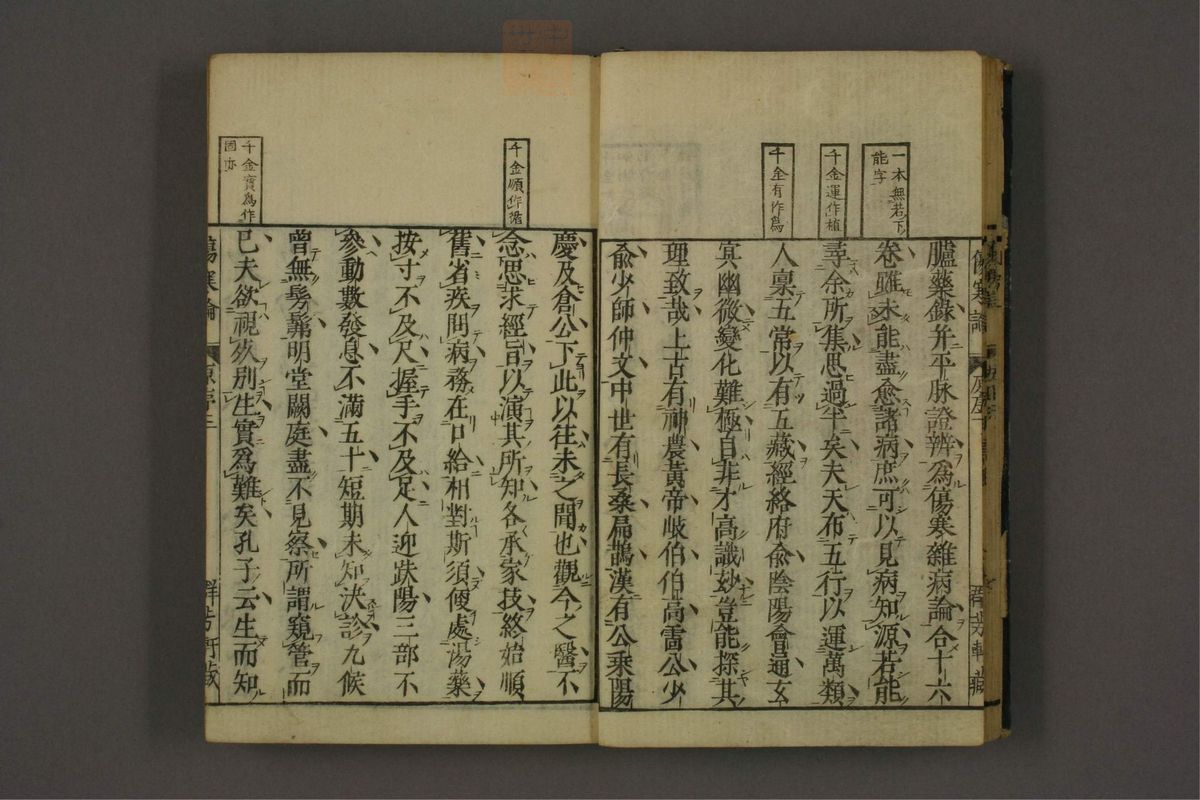 一本無若下
能字
千金運作植
千金有作為
臚藥錄并平脉證辨為傷寒雜病論合十六
卷雖未能盡愈諸病庶可以見病知源若能
尋余所集思過半矣夫天布五行以運萬類
人稟五常以有五藏經絡府兪陰陽會通玄
冥幽微變化難極自非才高識妙豈能探其
理致哉上古有神農黃帝岐伯伯高雷公少
兪少師仲文中世有長桑扁鵲漢有公乘陽
千金順作循
千金實為作
固亦
慶及倉公下此以往未之聞也觀今之醫不
念思求經旨以演其所知各承家技終始順
舊省疾問病務在口給相對斯須便處湯藥
按寸不及尺握手不及足人迎趺陽三部不
參動數發息不滿五十短期未知決診九候
曾無髣髴明堂闕庭盡不見察所謂窺管而
已夫欲視死別生實為難矣孔子云生而知
傷寒論
原序二